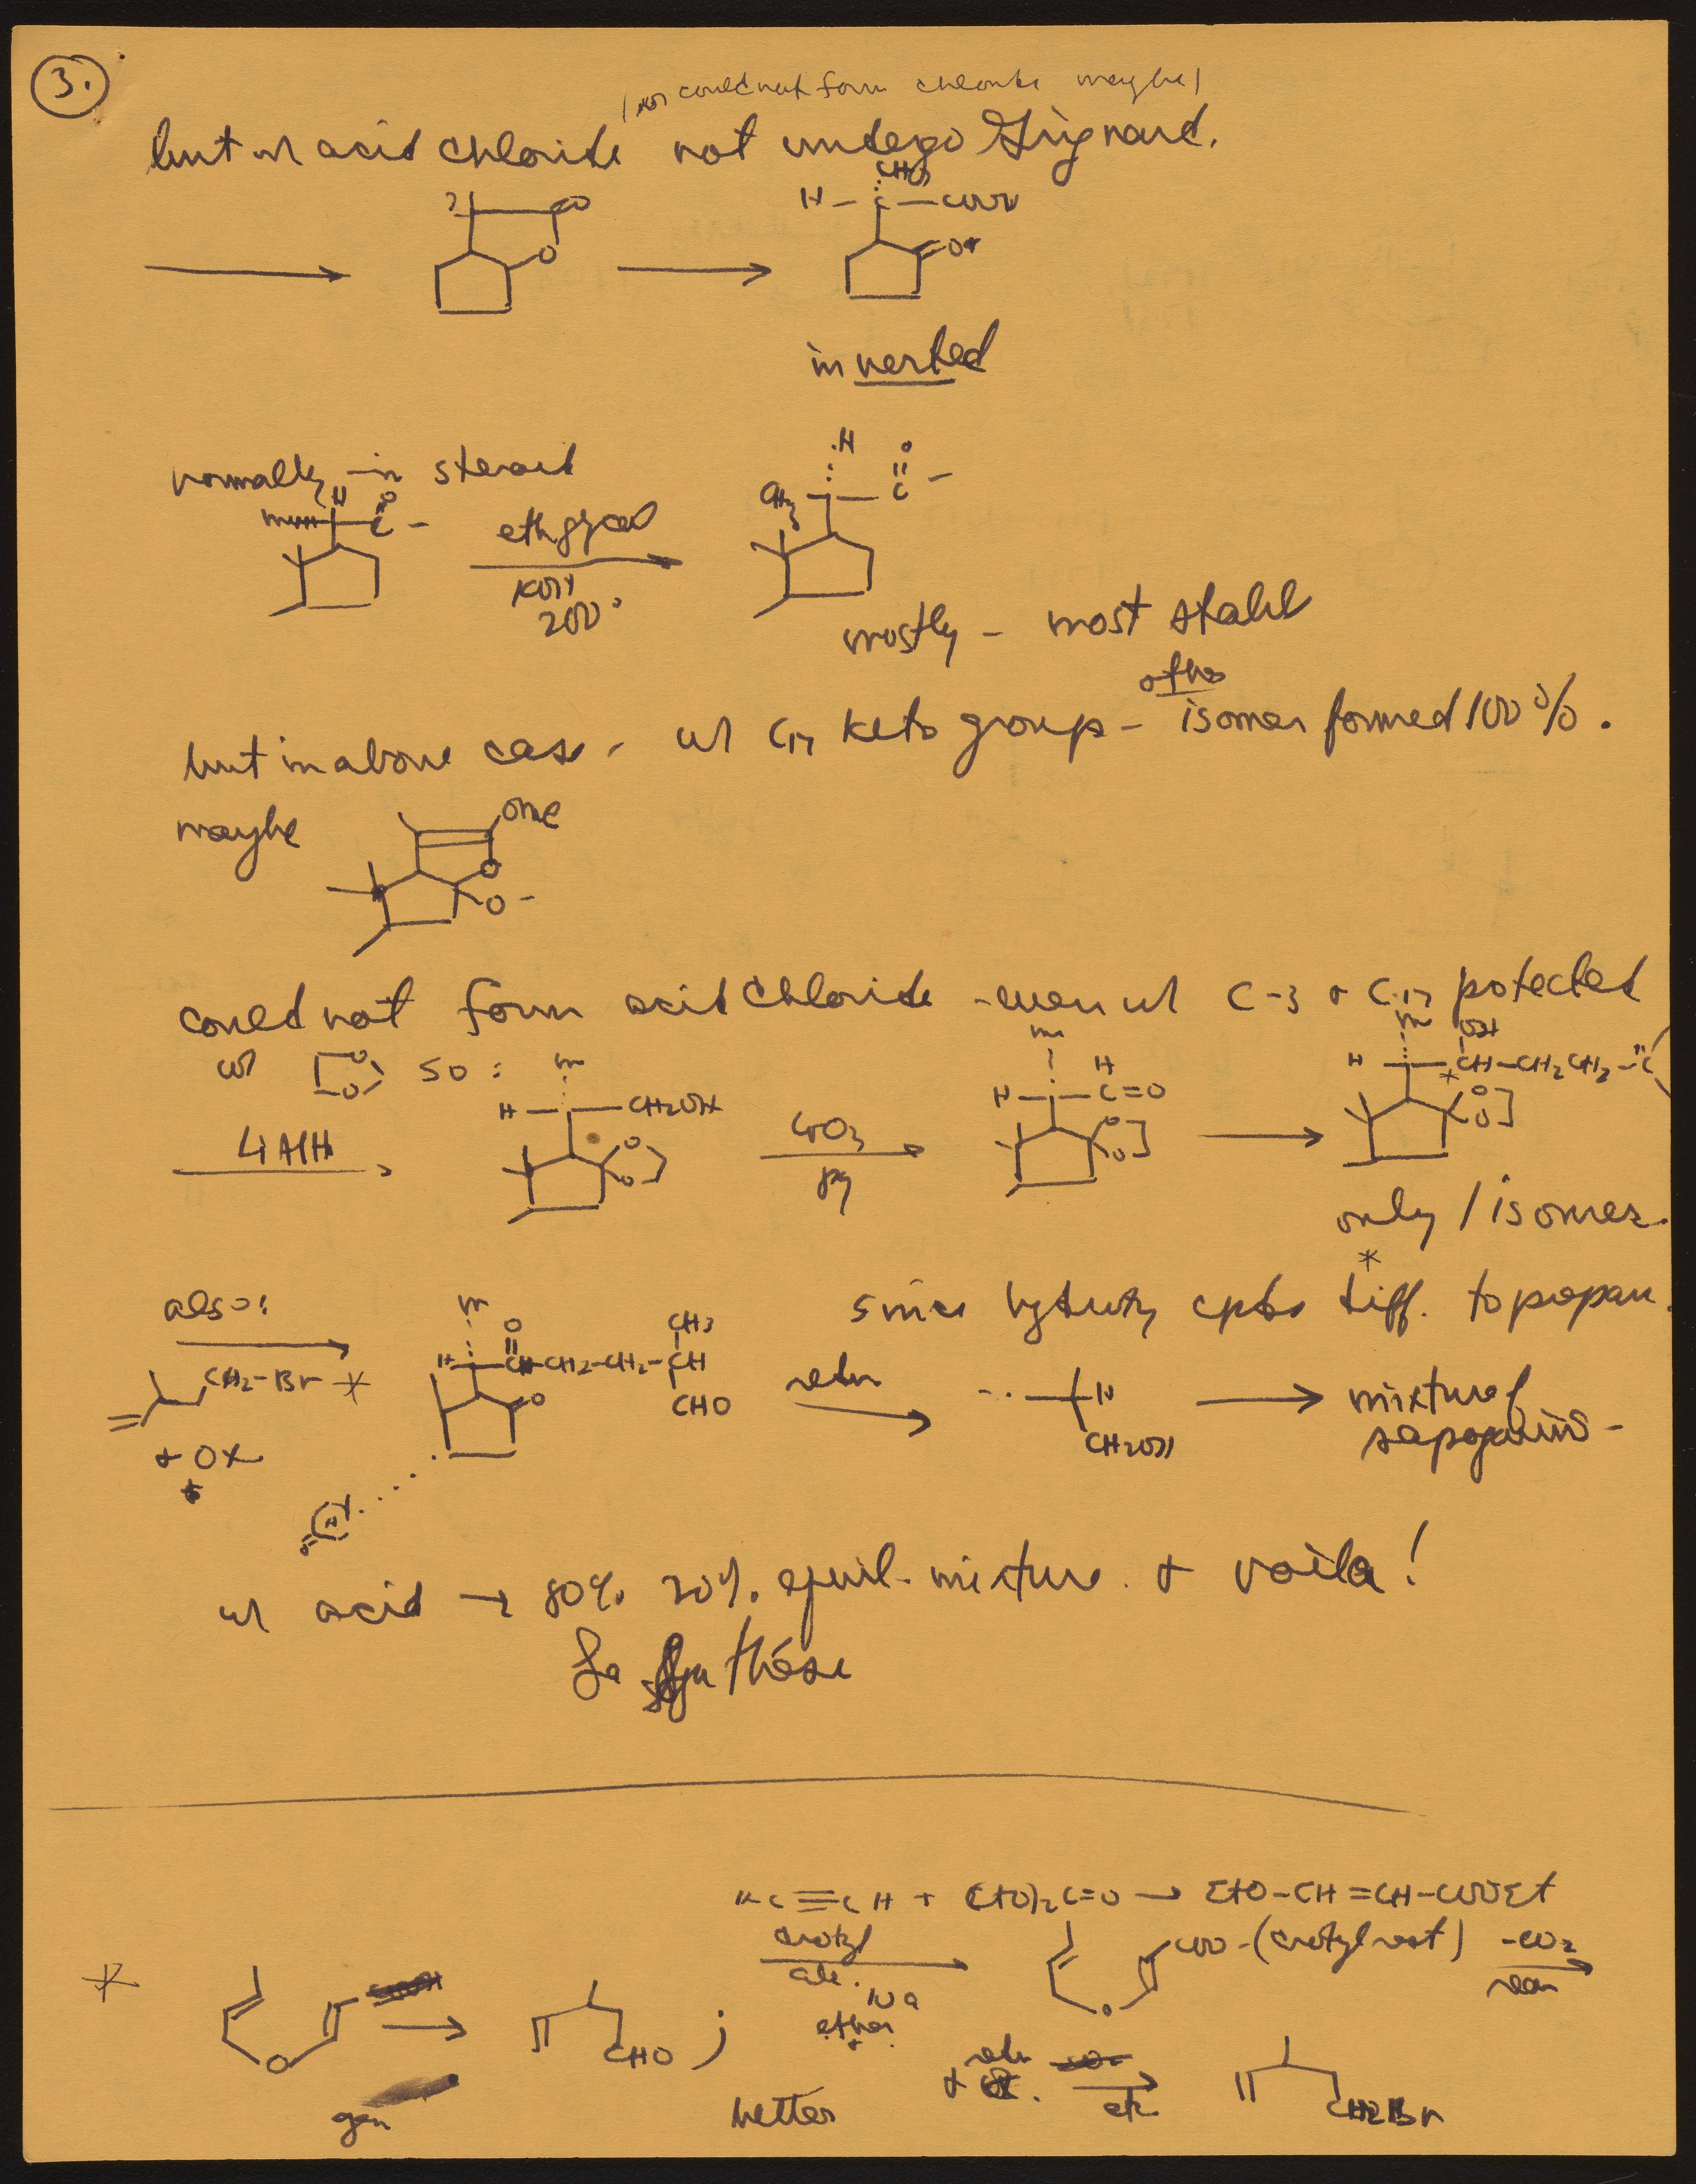 3.
could not form chloride maybe)
but w/ acid chloride not undergo Grignard.
CH3
H – C – COOH
O
inverted
normally in steroid
H O
C –
eth glycol
KOH
200°
H O
CH3 C –
mostly – most stabl
other
but in above case – w/ C17 keto group – isomer formed 100%.
maybe
OMe
O
O –
could not form acid chloride – even w/ C-3 + C-17 protected
w/ O O so:
LiAlH
m
H CH2OH
O O
CrO3
py
m H
H C=O
O O
m OH
H CH–CH2CH2–C
* O O
only 1 isomer.
*
also:
CH2–Br *
+ Ox
m O CH3
H CH–CH2–CH2–CH
O CHO
H
CH2OH
mixture of
sapogenins –
w/ acid → 80% 20% equil. mixture. + voila!
La Synthèse
HC≡CH + (EtO)2C=O → EtO–CH=CH–COOEt
*
O
gen
CHO ;
crotyl
alc.
Na
ether
+
COO–(crotyl rest) –CO2
O
better
etc.
CH2Br